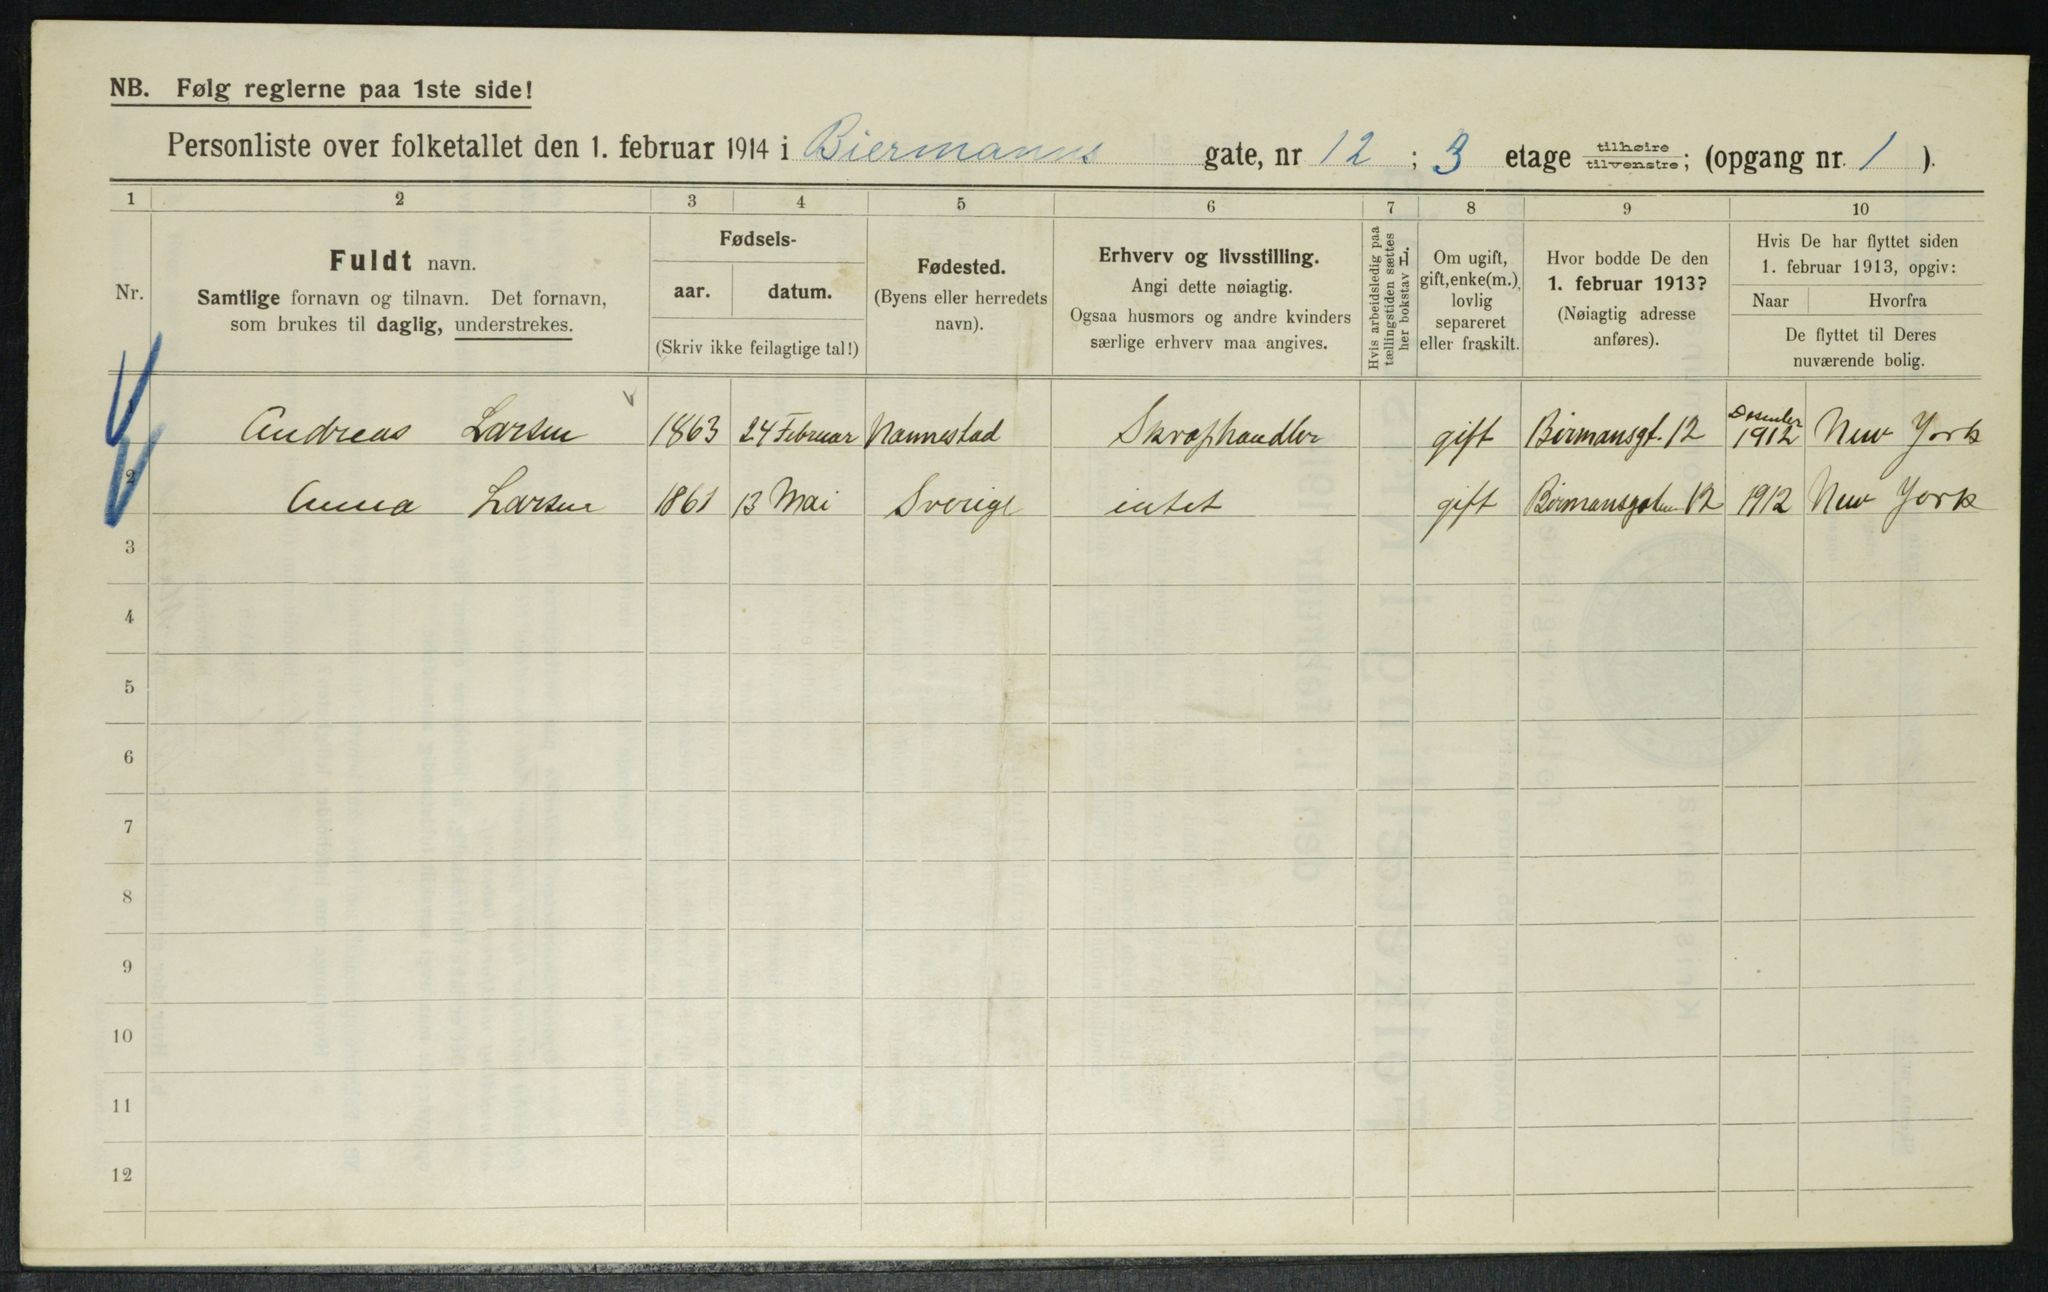 NB. Følg reglerne paa 1ste side!
Personliste over folketallet den 1. februar 1914 i Biermanns gate, nr 12; 3 etage tilhøire tilvenstre; (opgang nr. 1).
1 2 3 4 5 6 7 8 9 10
Nr.
Fuldt navn.
Samtlige fornavn og tilnavn. Det fornavn,
som brukes til daglig, understrekes.
Fødsels-
aar. datum.
(Skriv ikke feilagtige tal!)
Fødested.
(Byens eller herredets
navn).
Erhverv og livsstilling.
Angi dette nøiagtig.
Ogsaa husmors og andre kvinders
særlige erhverv maa angives.
Hvis arbeidsledig paa
tællingstiden sættes
her bokstav L.
Om ugift,
gift, enke(m.),
lovlig
separeret
eller fraskilt.
Hvor bodde De den
1. februar 1913?
(Nøiagtig adresse
anføres).
Hvis De har flyttet siden
1. februar 1913, opgiv:
Naar Hvorfra
De flyttet til Deres
nuværende bolig.
1 Andreas Larsen 1863 24 Februar Nannestad Skraphandler gift Birmansgt. 12 Desember 1912 New York
2 Anna Larsen 1861 13 Mai Sverige intet gift Birmansgaten 12 1912 New York
3
4
5
6
7
8
9
10
11
12